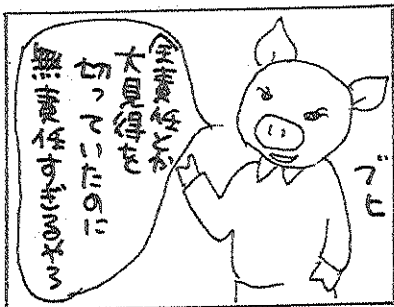 全責任とか
大見得を
切っていたのに
無責任すぎるやろ
ブヒ